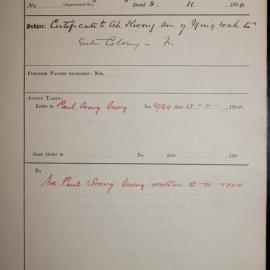 No. (Departmental No.) Dated 8. 11. 1900
Subject: Certificate to Ah Kwong On of Ying Wah to
Enter Colony - In
FURTHER PAPERS ENCLOSED: Nos.
ACTION TAKEN:
Letter to Paul Soong Quong No. date 13 - 11 - 1900.
Govt. Order to No. date 190
To
Mr. Paul Soong Quong written 13-11-1900